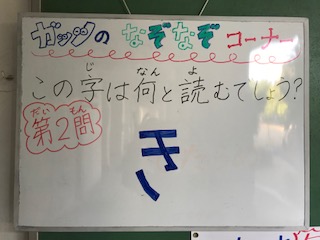 ガッツの なぞなぞ コーナー
じ なん よ
この字は何と読むでしょう?
だい もん
第2問